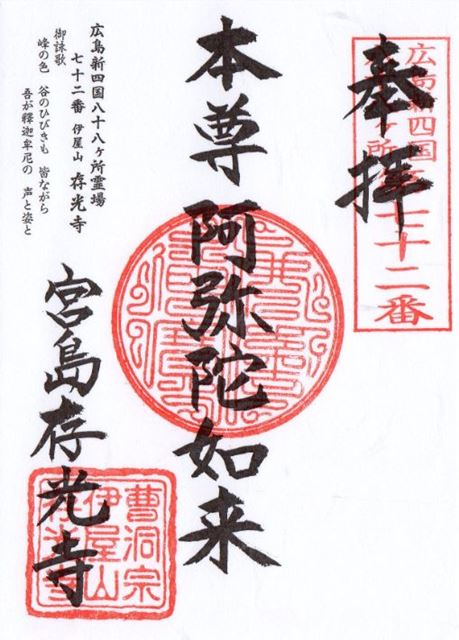 奉拝
広島新四国八十八ヶ所
七十二番
本尊 阿弥陀如来
広島新四国八十八ヶ所霊場
七十二番 伊屋山 存光寺
御詠歌
峰の色 谷のひびきも 皆ながら
吾が釋迦牟尼の 声と姿と
宮島存光寺
曹洞宗
伊屋山
存光寺